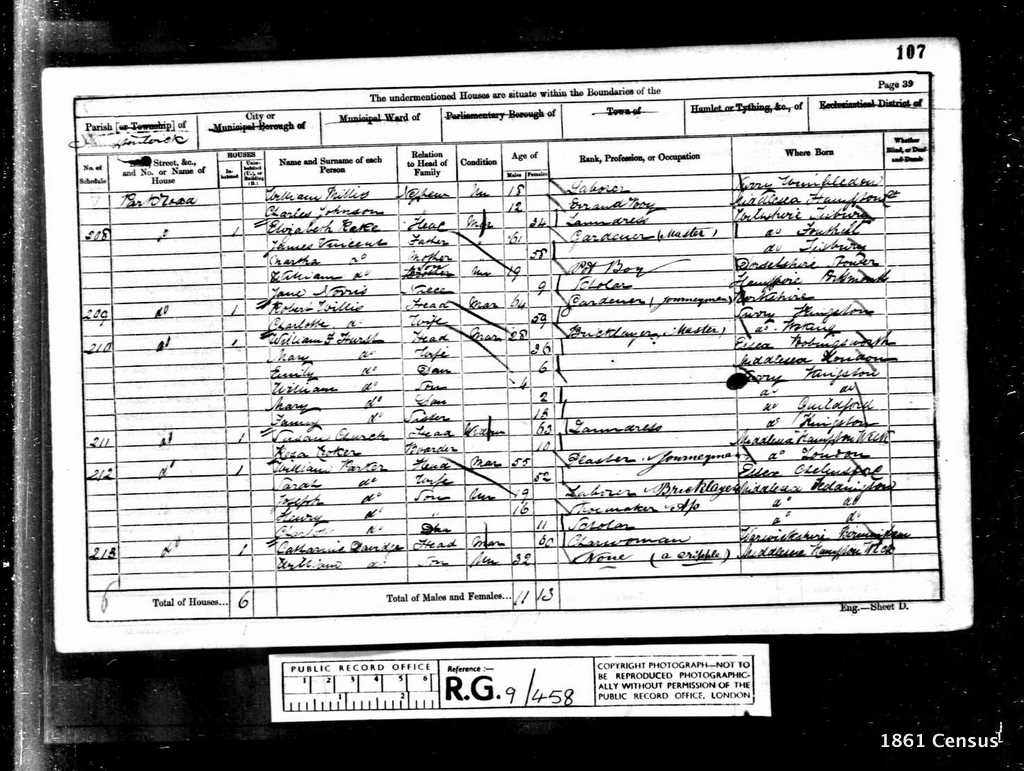 107
Page 39
The undermentioned Houses are situate within the Boundaries of the
Parish [or Township] of
City or Municipal Borough of
Municipal Ward of
Parliamentary Borough of
Town of
Hamlet or Tything, &c., of
Ecclesiastical District of
No. of Schedule
Street, &c., and No. or Name of House
HOUSES
Inhabited
Uninhabited (U.), or Building (B.)
Name and Surname of each Person
Relation to Head of Family
Condition
Age of
Males
Females
Rank, Profession, or Occupation
Where Born
Whether Blind, or Deaf-and-Dumb
William Willis Nephew Un 18 Laborer Wimbledon
Charles Johnson 12 Errand Boy Middlesex Hampton
208 do 1 Elizabeth Head Mar 34 Laundress Wiltshire Tisbury
James Vincent Father 61 Gardener (Master) do
Martha do Mother 58 do Tisbury
William do Un 19 Pot Boy Dorsetshire
Jane Norris Niece 9 Scholar
209 do 1 Robert Willis Head Mar 64 Gardener (Journeyman)
Charlotte do Wife 59 Kingston
210 do 1 William F Hurst Head Mar 28 Bricklayer (Master) do Woking
Mary do Wife 26 Essex
Emily do Dau 6 Middlesex London
William do Son 4 Kingston
Mary do Dau 2 do do
Fanny do Sister 18 do Guildford
211 do 1 Susan Church Head Widow 63 Laundress do Kingston
Boarder 10 Middlesex Hampton Wick
212 do 1 William Parker Head Mar 55 Journeyman do London
Sarah do Wife 52 Essex Chelmsford
Joseph do Son Un 19 Laborer Bricklayer Middlesex Teddington
Henry do " 16 Shoemaker Ap do do
do 11 Scholar do do
213 do 1 Catharine Head Mar 60 Charwoman Warwickshire Birmingham
William do Son Un 32 None (a Cripple) Middlesex Hampton Wick
6 Total of Houses... 6
Total of Males and Females... 11 13
Eng.—Sheet D.
PUBLIC RECORD OFFICE
1 2 3 4 5 6
1 2
Reference :—
R.G. 9/458
COPYRIGHT PHOTOGRAPH—NOT TO
BE REPRODUCED PHOTOGRAPHIC-
ALLY WITHOUT PERMISSION OF THE
PUBLIC RECORD OFFICE, LONDON
1861 Census